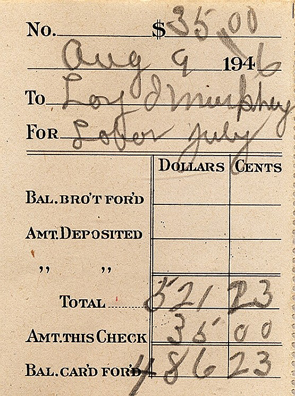 No. $35.00
Aug 9 1946
To Loy D Murphey
For Labor July
Dollars Cents
Bal. Bro't For'd
Amt. Deposited
,, ,,
Total 521 23
Amt. This Check 35 00
Bal. Car'd For'd 486 23